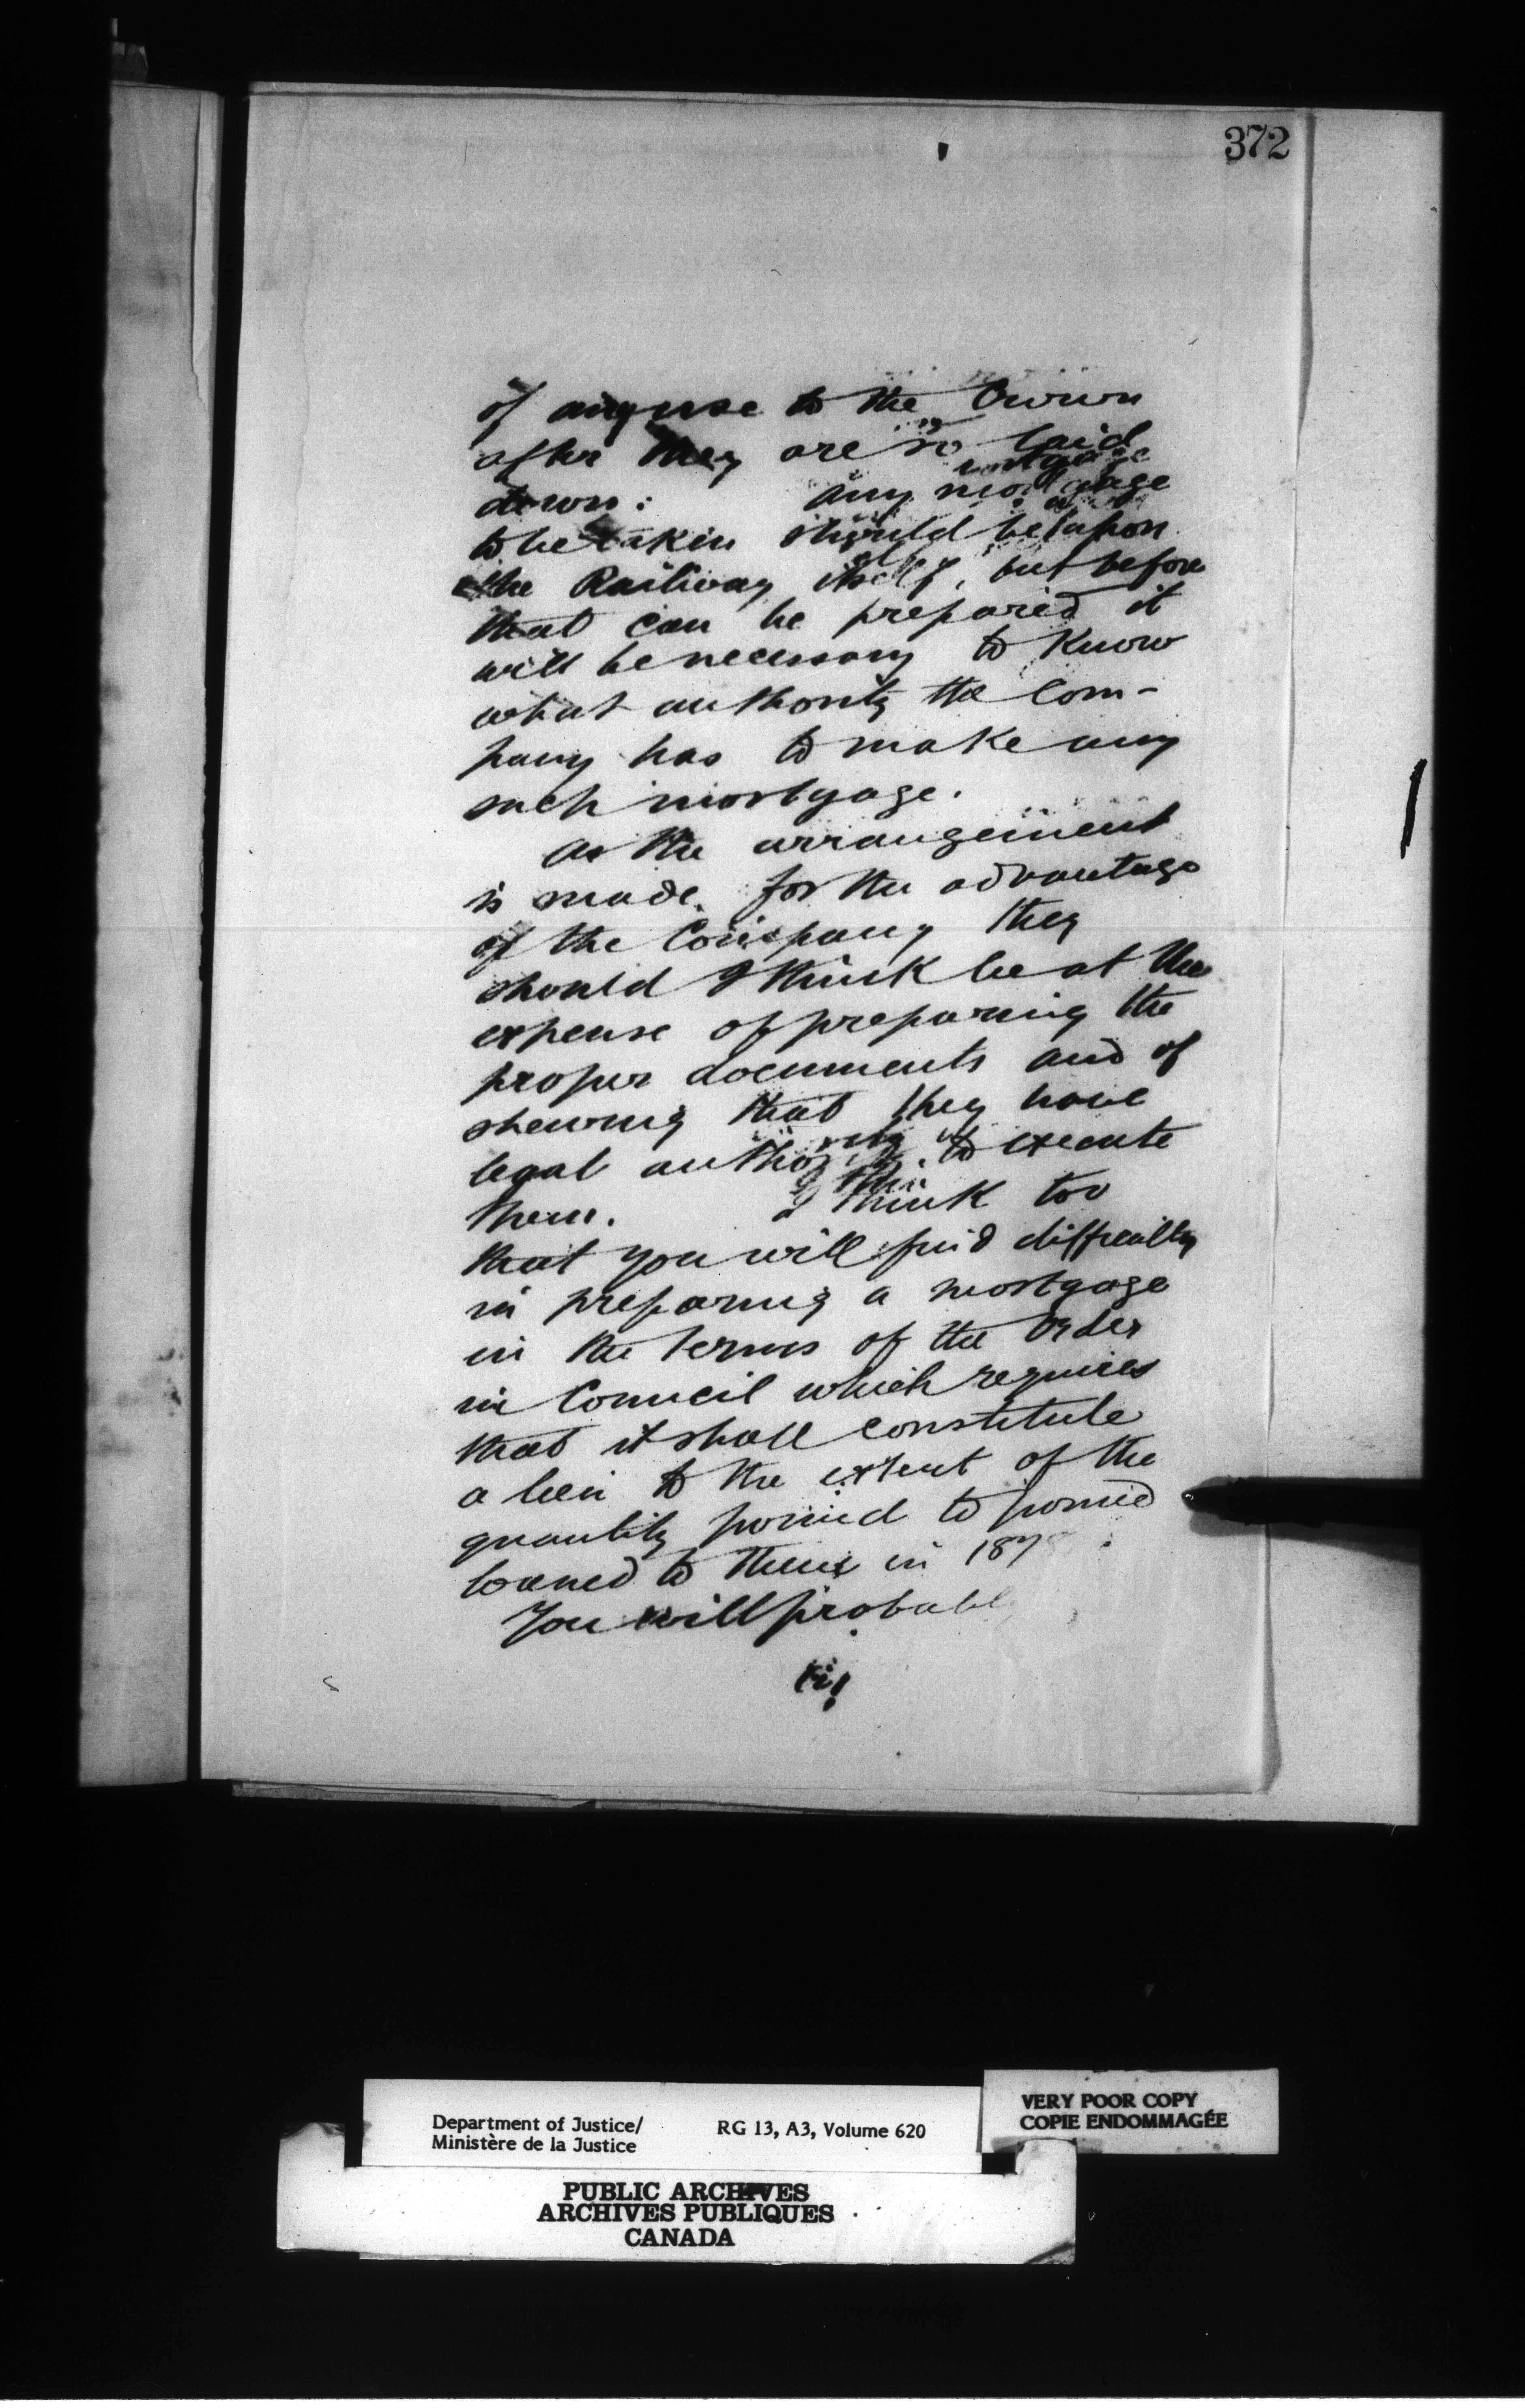 372
of any use to the Crown
after they are so laid
down: any mortgage
to be taken should be upon
the Railway itself, but before
that can be prepared it
will be necessary to know
what authority the Com-
pany has to make any
such mortgage.
As the arrangement
is made for the advantage
of the Company they
should I think be at the
expense of preparing the
proper documents and of
shewing that they have
legal authority to execute
them. I think too
that you will find difficulty
in preparing a mortgage
in the terms of the Order
in Council which requires
that it shall constitute
a lien to the extent of the
quantity pound to pound
loaned to them in 187
You will probabl
Department of Justice/
Ministère de la Justice
RG 13, A3, Volume 620
VERY POOR COPY
COPIE ENDOMMAGÉE
PUBLIC ARCHIVES
ARCHIVES PUBLIQUES
CANADA